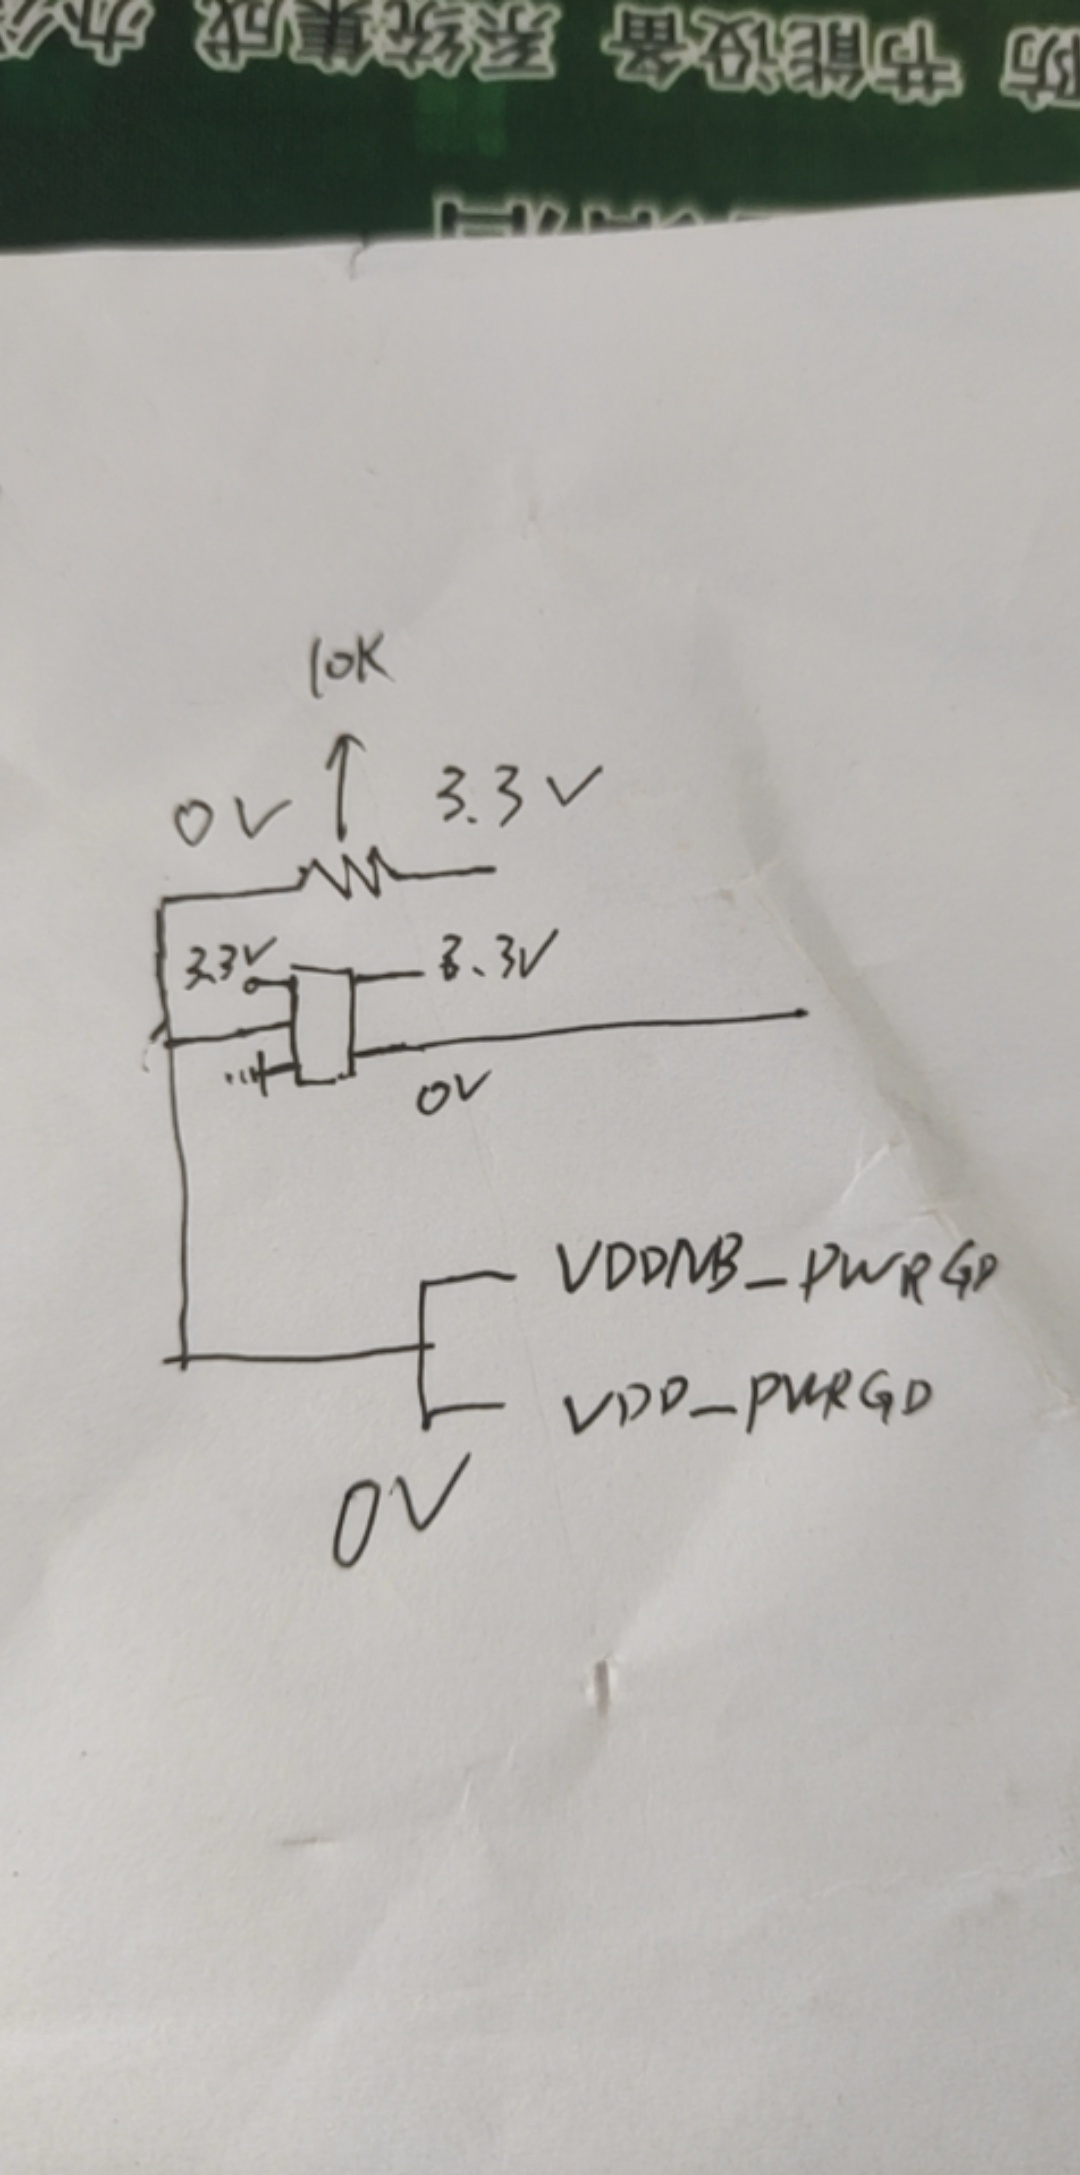 办公 系统集成 节能设备 防
10K
0V 3.3V
3.3V 3.3V
0V
VDDNB_PWRGD
VDD_PWRGD
0V